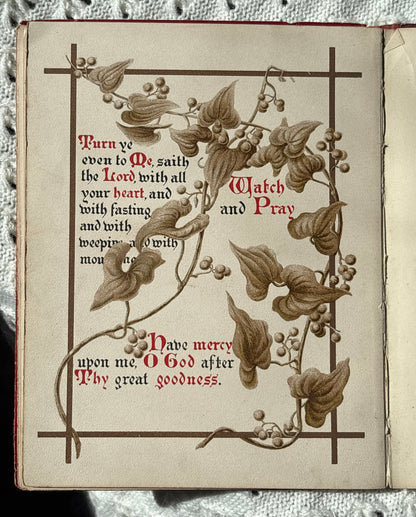 Turn ye
even to Me, saith
the Lord, with all
your heart, and
with fasting
and with
weeping and with
Watch
and Pray
Have mercy
upon me, O God after
Thy great goodness.